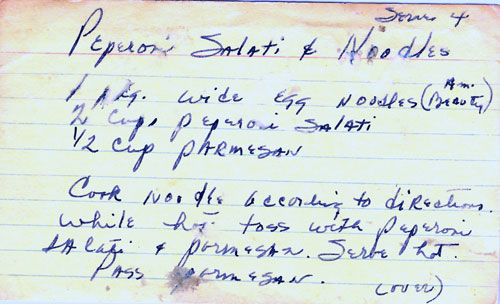 Serves 4
Peperoni Salati & Noodles
1 pkg. wide egg noodles (Am. Beauty)
2 cups peperoni salati
1/2 cup parmesan
Cook noodle according to directions.
While hot toss with peperoni
salati & parmesan. Serve hot.
Pass parmesan.
(over)